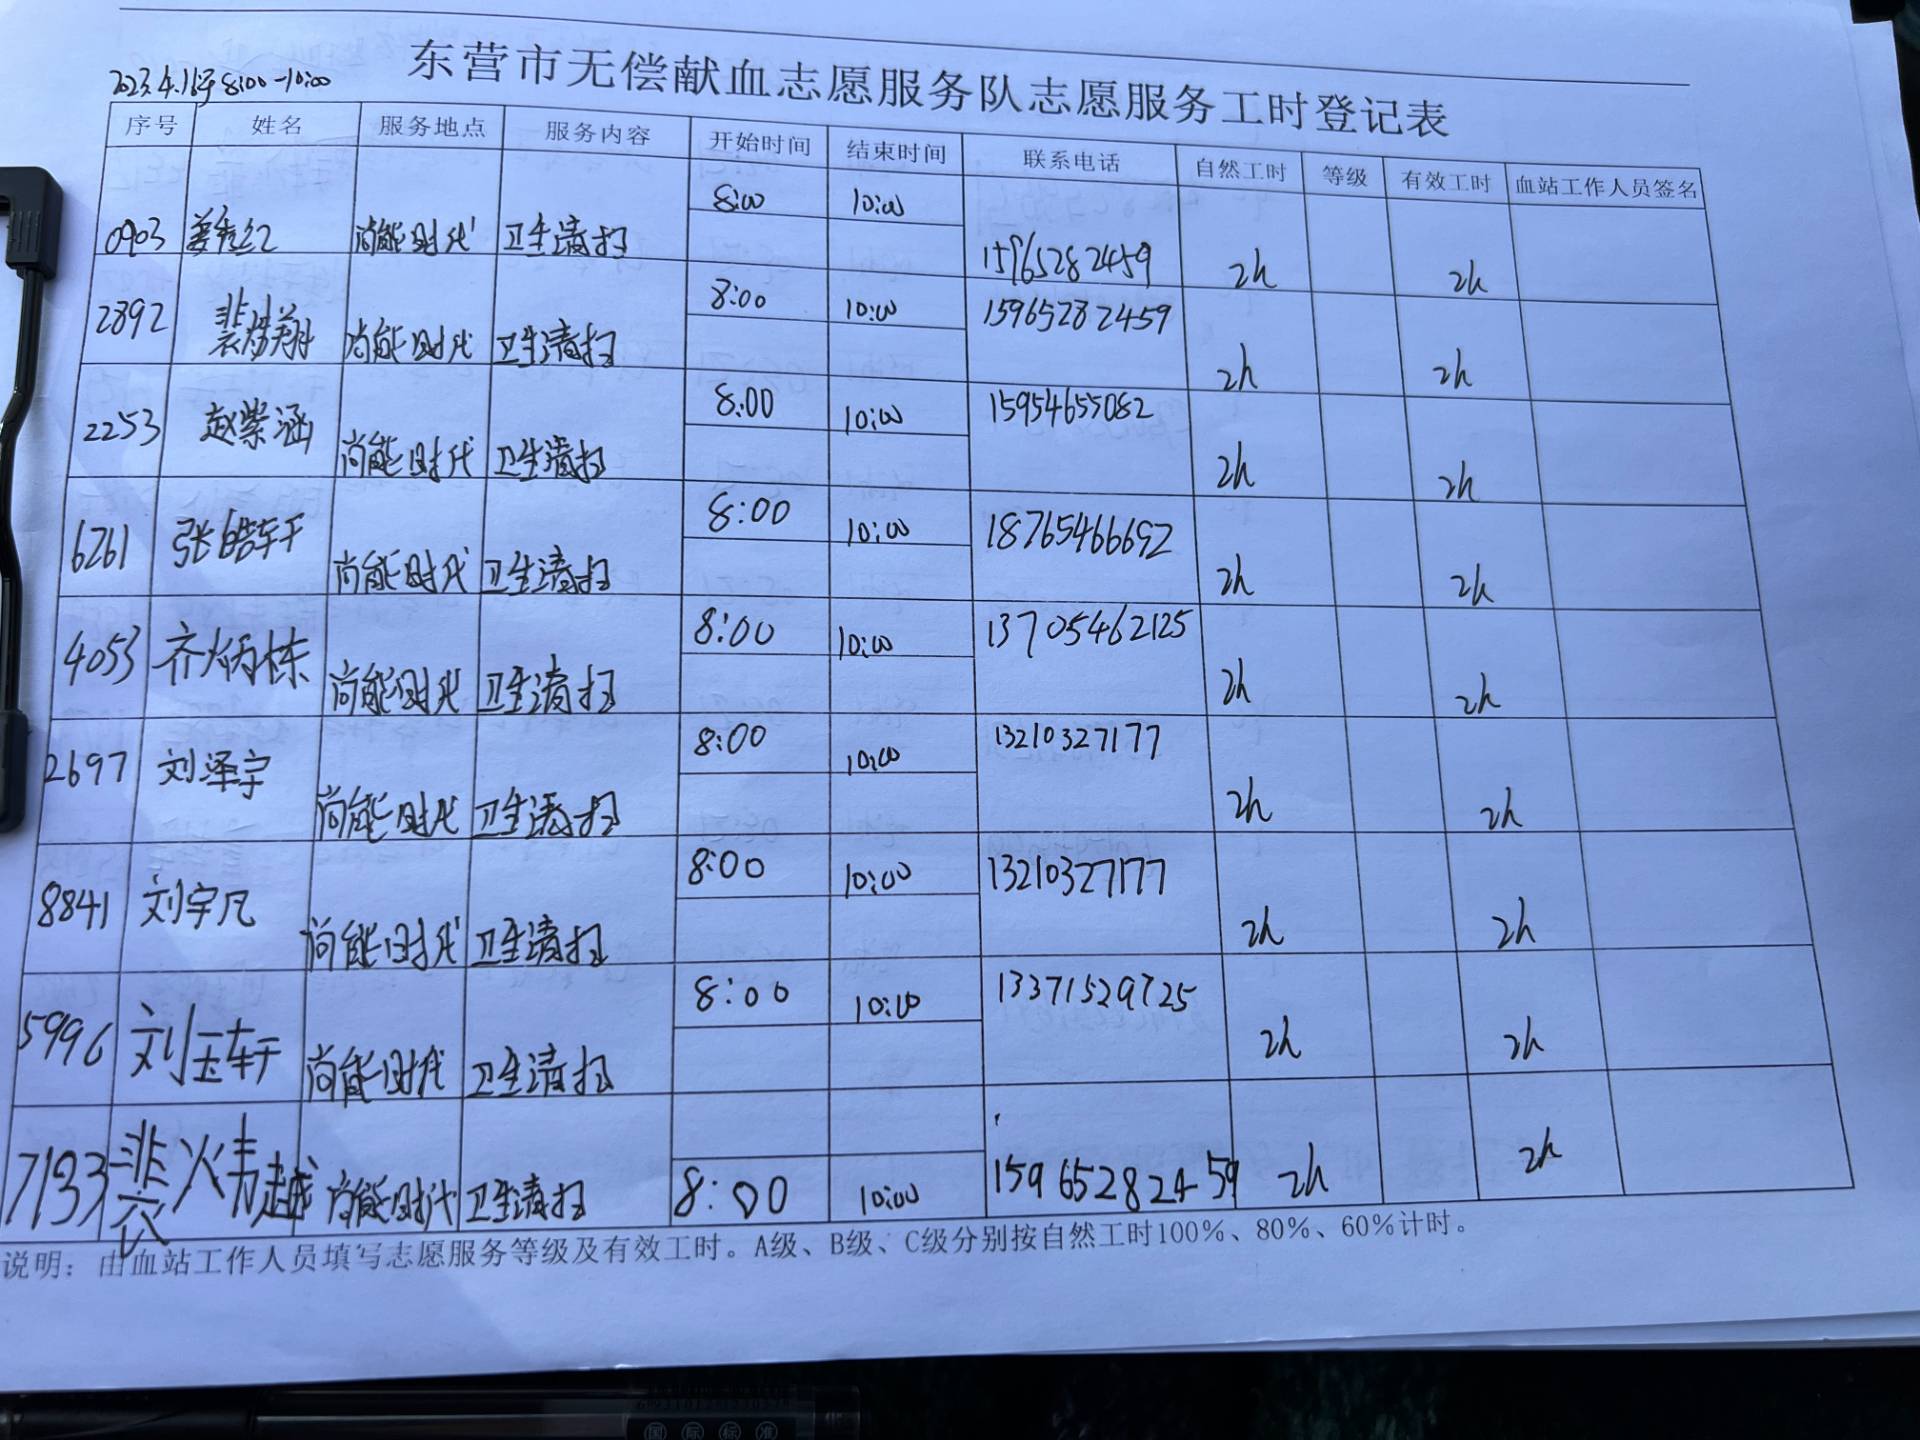 东营市无偿献血志愿服务队志愿服务工时登记表
2023.4.16 8:00-10:00
序号 姓名 服务地点 服务内容 开始时间 结束时间 联系电话 自然工时 等级 有效工时 血站工作人员签名
0903 姜秀红 尚能时代 卫生清扫 8:00 10:00 15965282459 2h 2h
2892 裴烨翔 尚能时代 卫生清扫 8:00 10:00 15965282459 2h 2h
2253 赵紫涵 尚能时代 卫生清扫 8:00 10:00 15954655082 2h 2h
6261 张皓轩 尚能时代 卫生清扫 8:00 10:00 18765466692 2h 2h
4053 齐炳栋 尚能时代 卫生清扫 8:00 10:00 13705462125 2h 2h
2697 刘泽宇 尚能时代 卫生清扫 8:00 10:00 13210327177 2h 2h
8841 刘宇凡 尚能时代 卫生清扫 8:00 10:00 13210327177 2h 2h
5996 刘玉轩 尚能时代 卫生清扫 8:00 10:00 13371529725 2h 2h
7193 裴炜越 尚能时代 卫生清扫 8:00 10:00 15965282459 2h 2h
说明：由血站工作人员填写志愿服务等级及有效工时。A级、B级、C级分别按自然工时100%、80%、60%计时。
国际标准